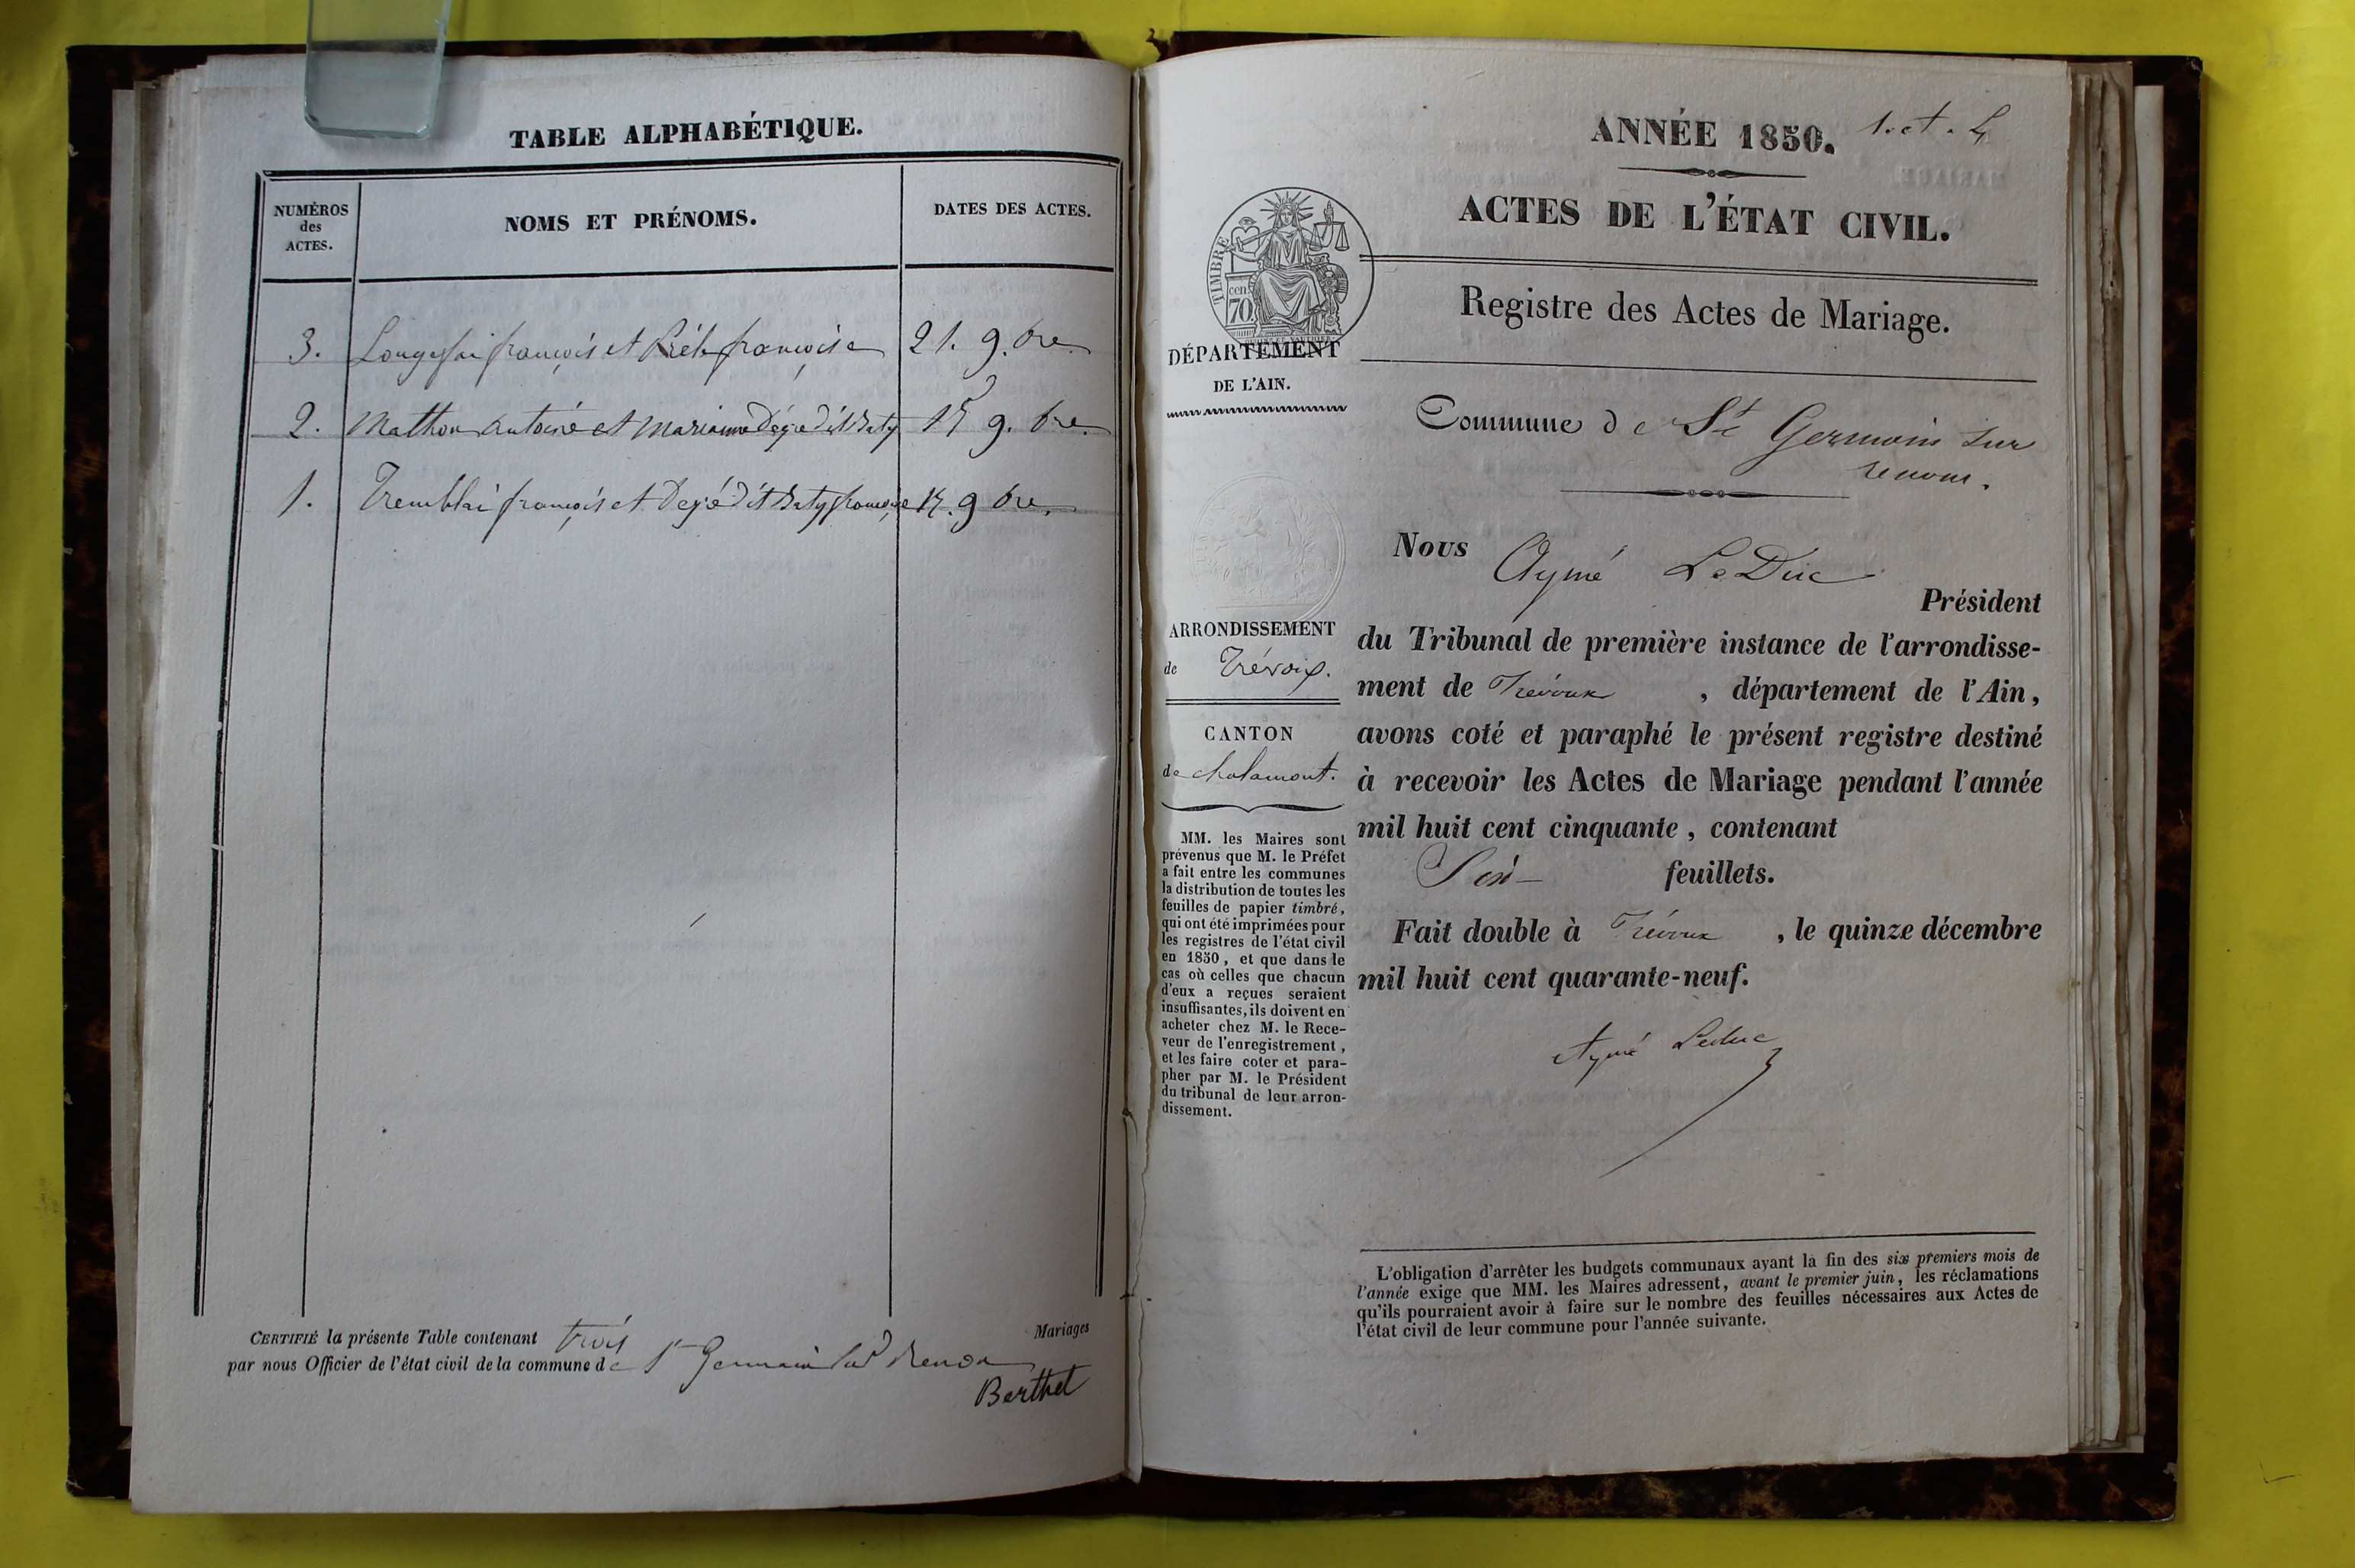 TABLE ALPHABÉTIQUE.
NUMÉROS
des
ACTES.
NOMS ET PRÉNOMS.
DATES DES ACTES.
3. françois et françoise 21. 9.bre
2. Mathon antoine et Marianne Dégé dit Baty 9. bre.
1. Tremblai françois et Degé dit Baty françoise 9 bre.
CERTIFIÉ la présente Table contenant trois Mariages
par nous Officier de l'état civil de la commune de St Germain sur Renon
Berthet
ANNÉE 1850. 1. et.
ACTES DE L'ÉTAT CIVIL.
Registre des Actes de Mariage.
TIMBRE
cen.
70
DÉPARTEMENT
DE L'AIN.
Commune de St Germain sur
renom.
ARRONDISSEMENT
de Trévoux.
CANTON
de chalamont.
MM. les Maires sont
prévenus que M. le Préfet
a fait entre les communes
la distribution de toutes les
feuilles de papier timbré,
qui ont été imprimées pour
les registres de l'état civil
en 1850, et que dans le
cas où celles que chacun
d'eux a reçues seraient
insuffisantes, ils doivent en
acheter chez M. le Rece-
veur de l'enregistrement,
et les faire coter et para-
pher par M. le Président
du tribunal de leur arron-
dissement.
Nous Aymé LeDuc
Président
du Tribunal de première instance de l'arrondisse-
ment de Trévoux, département de l'Ain,
avons coté et paraphé le présent registre destiné
à recevoir les Actes de Mariage pendant l'année
mil huit cent cinquante, contenant
Six feuillets.
Fait double à Trévoux, le quinze décembre
mil huit cent quarante-neuf.
Aymé Leduc
L'obligation d'arrêter les budgets communaux avant la fin des six premiers mois de
l'année exige que MM. les Maires adressent, avant le premier juin, les réclamations
qu'ils pourraient avoir à faire sur le nombre des feuilles nécessaires aux Actes de
l'état civil de leur commune pour l'année suivante.